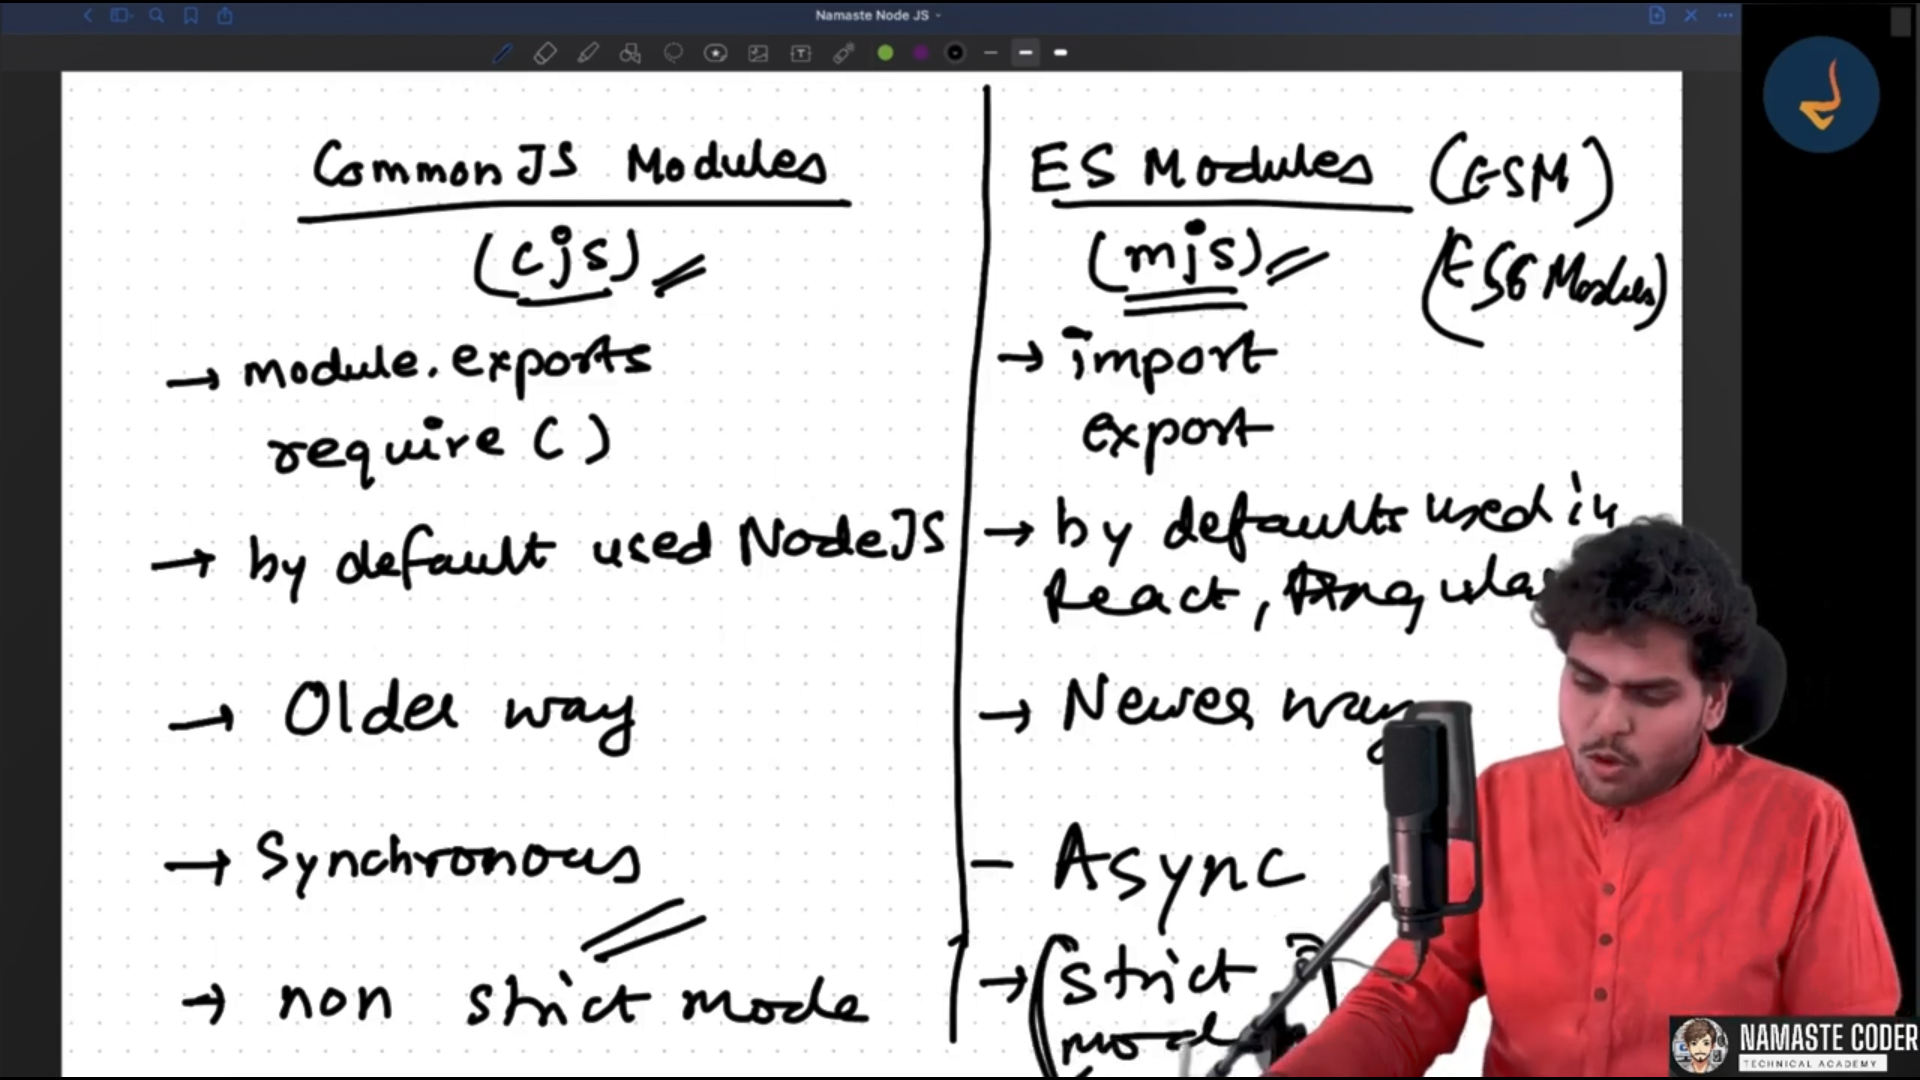 Namaste Node JS
CommonJS Modules
(cjs)
→ module.exports
require()
→ by default used NodeJS
→ Older way
→ Synchronous
→ non strict mode
ES Modules (ESM)
(mjs) (ES6 Modules)
→ import
export
→ by defaults used in
React, Angular
→ Newer way
- Async
→ (strict
mode
NAMASTE CODER
TECHNICAL ACADEMY